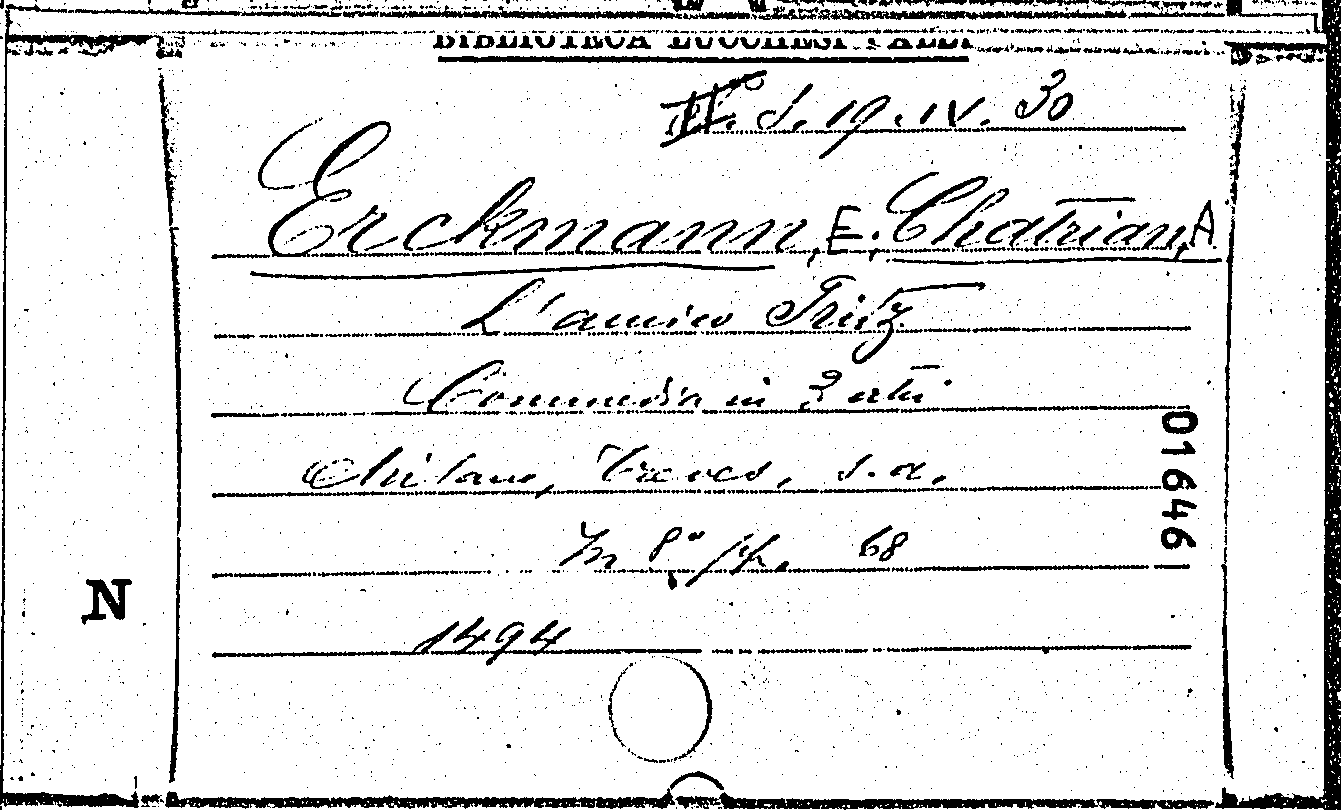 BIBLIOTECA LUCCHESI-PALLI
III. S. 19. IV. 30
Erckmann, E. Chatrian, A
L'amico Fritz
Commedia in 3 atti
Milano, Treves, s. a.
In 8° pp. 68
1494
01646
N